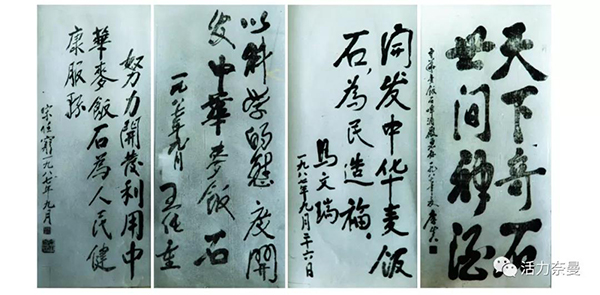 努力開發利用中
華麥飯石為人民健
康服務
宋任窮一九八七年九月
以科学的態度開
发中華麥飯石
一九八七年九月 王任重
开发中华麦饭
石,为民造福。
马文瑞
一九八七年九月二十六日
天下奇石
世间神酒
活力奈曼